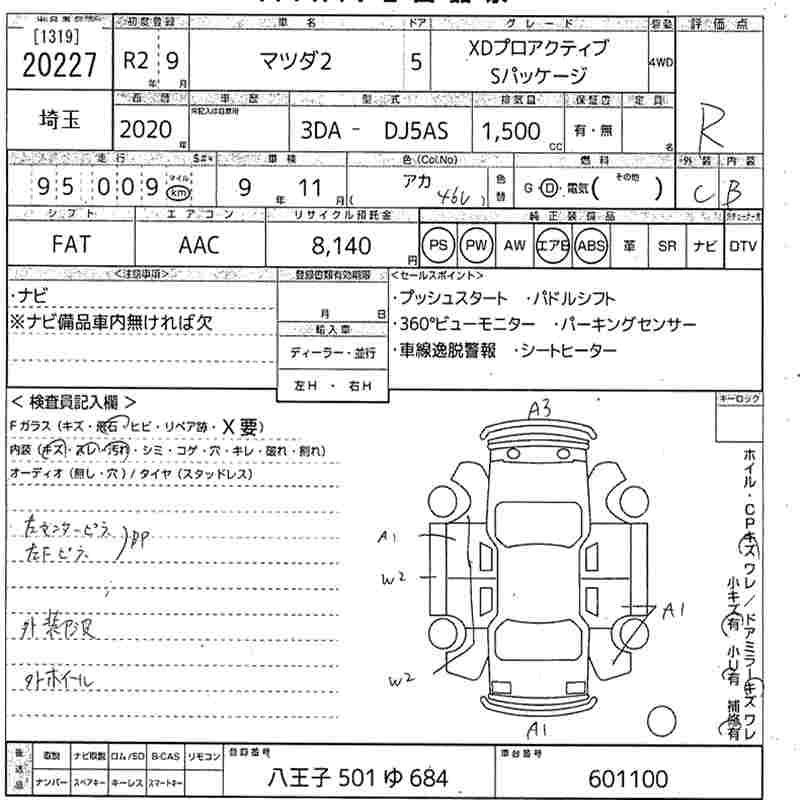 初度登録 車名 ドア グレード 評価点
[1319]
20227 R2年 9月 マツダ2 5 XDプロアクティブ 4WD
Sパッケージ
埼玉 西暦 車歴 型式 排気量 保証書 定員 R
2020年 3DA - DJ5AS 1,500cc 有・無 名
走行 車検 色(Col.No) 燃料 外装 内装
95,009 マイル km 9年 11月 アカ 46V 色替 G・D・電気( その他 ) C B
シフト エアコン リサイクル預託金 純正装備品
FAT AAC 8,140円 PS PW AW エアB ABS 革 SR ナビ DTV
<注意事項> 登録書類有効期限 <セールスポイント>
・ナビ 月 日 ・プッシュスタート ・パドルシフト
※ナビ備品車内無ければ欠 輸入車 ・360°ビューモニター ・パーキングセンサー
ディーラー・並行 ・車線逸脱警報 ・シートヒーター
左H ・ 右H
キーロック
< 検査員記入欄 > A3
Fガラス (キズ・飛石・ヒビ・リペア跡・X要)
内装 (キズ・スレ・汚れ・シミ・コゲ・穴・キレ・破れ・割れ)
オーディオ (無し・穴) / タイヤ (スタッドレス)
左センターピラ
左Fピラ
)BP
A1
W2
A1
外装凹沢
W2
外ホイール
A1
ホイル・CPキズワレ/ドアミラーキズワレ
小キズ有 小U有 補修有
後送品 取説 ナビ取説 ロム/SD B-CAS リモコン 登録番号 車台番号
ナンバー スペアキー キーレス スマートキー 八王子 501 ゆ 684 601100